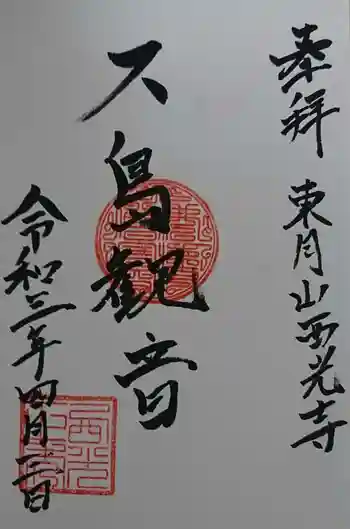 奉拝 東月山西光寺
久鳥観音
令和三年四月二日